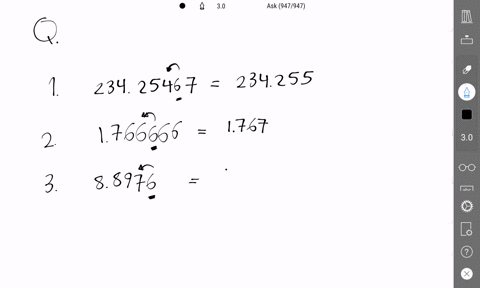 3.0 Ask (947/947)
Q.
1. 234.25467 = 234.255
2. 1.766666 = 1.767
3. 8.8976 =
3.0